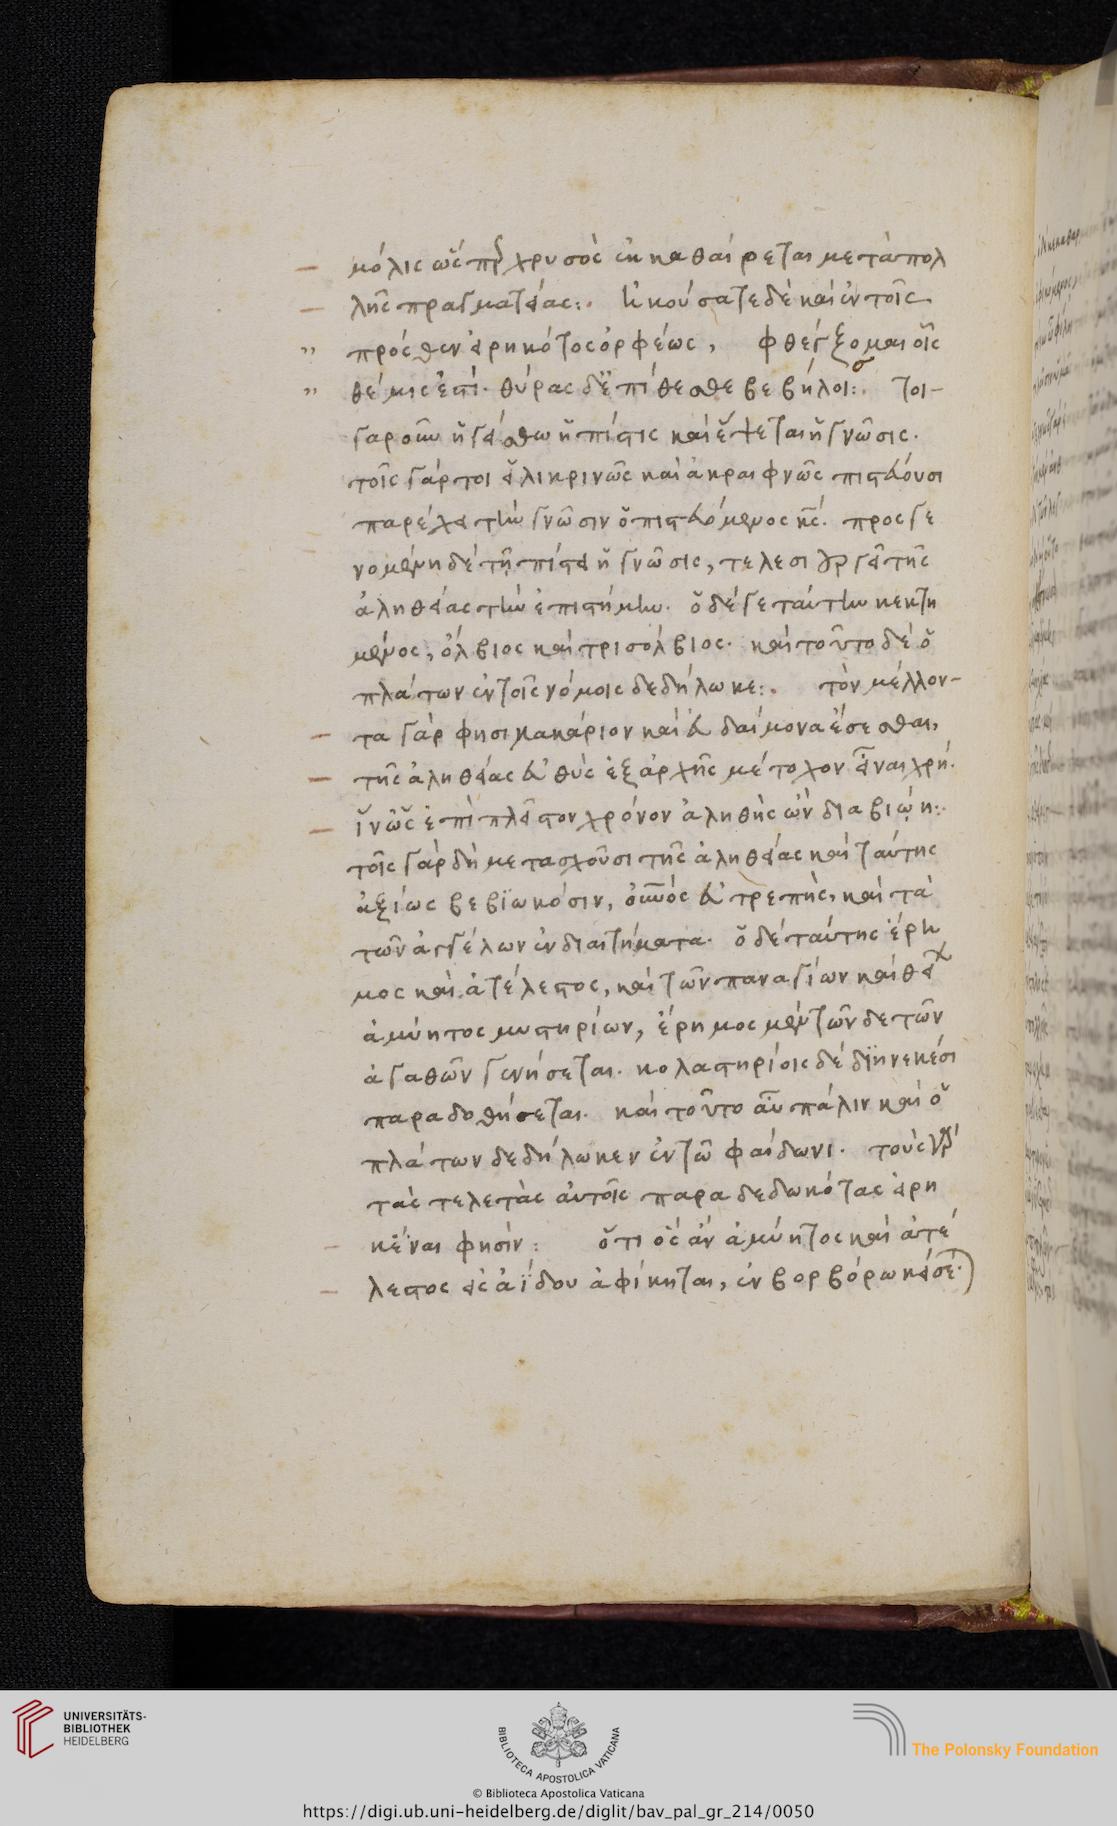 μόλις ὥσπερ χρυσὸς ἐκκαθαίρεται μετὰ πολ
λῆς πραγματείας:. Ἠκούσατε δὲ καὶ ἐν τοῖς
πρόσθεν εἰρηκότος ὀρφέως, φθέγξομαι οἷς
θέμις ἐστί· θύρας δ' ἐπίθεσθε βεβήλοις:. Τοι-
γαροῦν ἡγείσθω ἡ πίστις καὶ ἕψεται ἡ γνῶσις.
τοῖς γάρ τοι εἰλικρινῶς καὶ ἀκραιφνῶς πιστεύουσι
παρέχει τὴν γνῶσιν ὁ πιστευόμενος κς. προσγε
νομένη δὲ τῇ πίστει ἡ γνῶσις, τελεσιουργεῖ τῆς
ἀληθείας τὴν ἐπιστήμην. ὁ δέ γε ταύτην κεκτη
μένος, ὄλβιος καὶ τρισόλβιος. καὶ τοῦτο δὲ ὁ
πλάτων ἐν τοῖς νόμοις δεδήλωκε:. τὸν μέλλον-
τα γάρ φησι μακάριον καὶ εὐδαίμονα ἔσεσθαι,
τῆς ἀληθείας εὐθὺς ἐξ ἀρχῆς μέτοχον εἶναι χρή.
ἵν' ὡς ἐπὶ πλεῖστον χρόνον ἀληθὴς ὢν διαβιῴη:.
τοῖς γὰρ δὴ μετασχοῦσι τῆς ἀληθείας καὶ ταύτης
ἀξίως βεβϊωκόσιν, ὁ οὐνός εὐτρεπής, καὶ τὰ
τῶν ἀγγέλων ἐνδιαιτήματα. ὁ δὲ ταύτης ἔρη
μος καὶ ἀτέλεστος, καὶ τῶν παναγίων καὶ θείων
ἀμύητος μυστηρίων, ἔρημος μὲν τῶνδε τῶν
ἀγαθῶν γενήσεται. κολαστηρίοις δὲ διηνεκέσι
παραδοθήσεται. καὶ τοῦτο αὖ πάλιν καὶ ὁ
πλάτων δεδήλωκεν ἐν τῶ φαίδωνι. τοὺς γὰρ
τὰς τελετὰς αὐτοῖς παραδεδωκότας εἰρη
κέναι φησίν: ὅτι ὃς ἂν ἀμύητος καὶ ἀτέ
λεστος εἰς ἀΐδου ἀφίκηται, ἐν βορβόρω κείσεται.
UNIVERSITÄTS-
BIBLIOTHEK
HEIDELBERG
BIBLIOTECA APOSTOLICA VATICANA
The Polonsky Foundation
© Biblioteca Apostolica Vaticana
https://digi.ub.uni-heidelberg.de/diglit/bav_pal_gr_214/0050